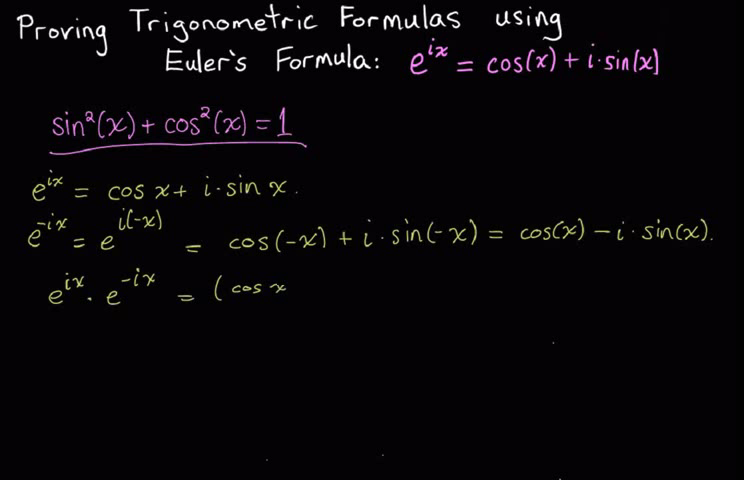 Proving Trigonometric Formulas using
Euler's Formula: e^{ix} = cos(x) + i·sin(x)
sin²(x) + cos²(x) = 1
e^{ix} = cos x + i·sin x.
e^{-ix} = e^{i(-x)} = cos(-x) + i·sin(-x) = cos(x) - i·sin(x).
e^{ix}·e^{-ix} = (cos x